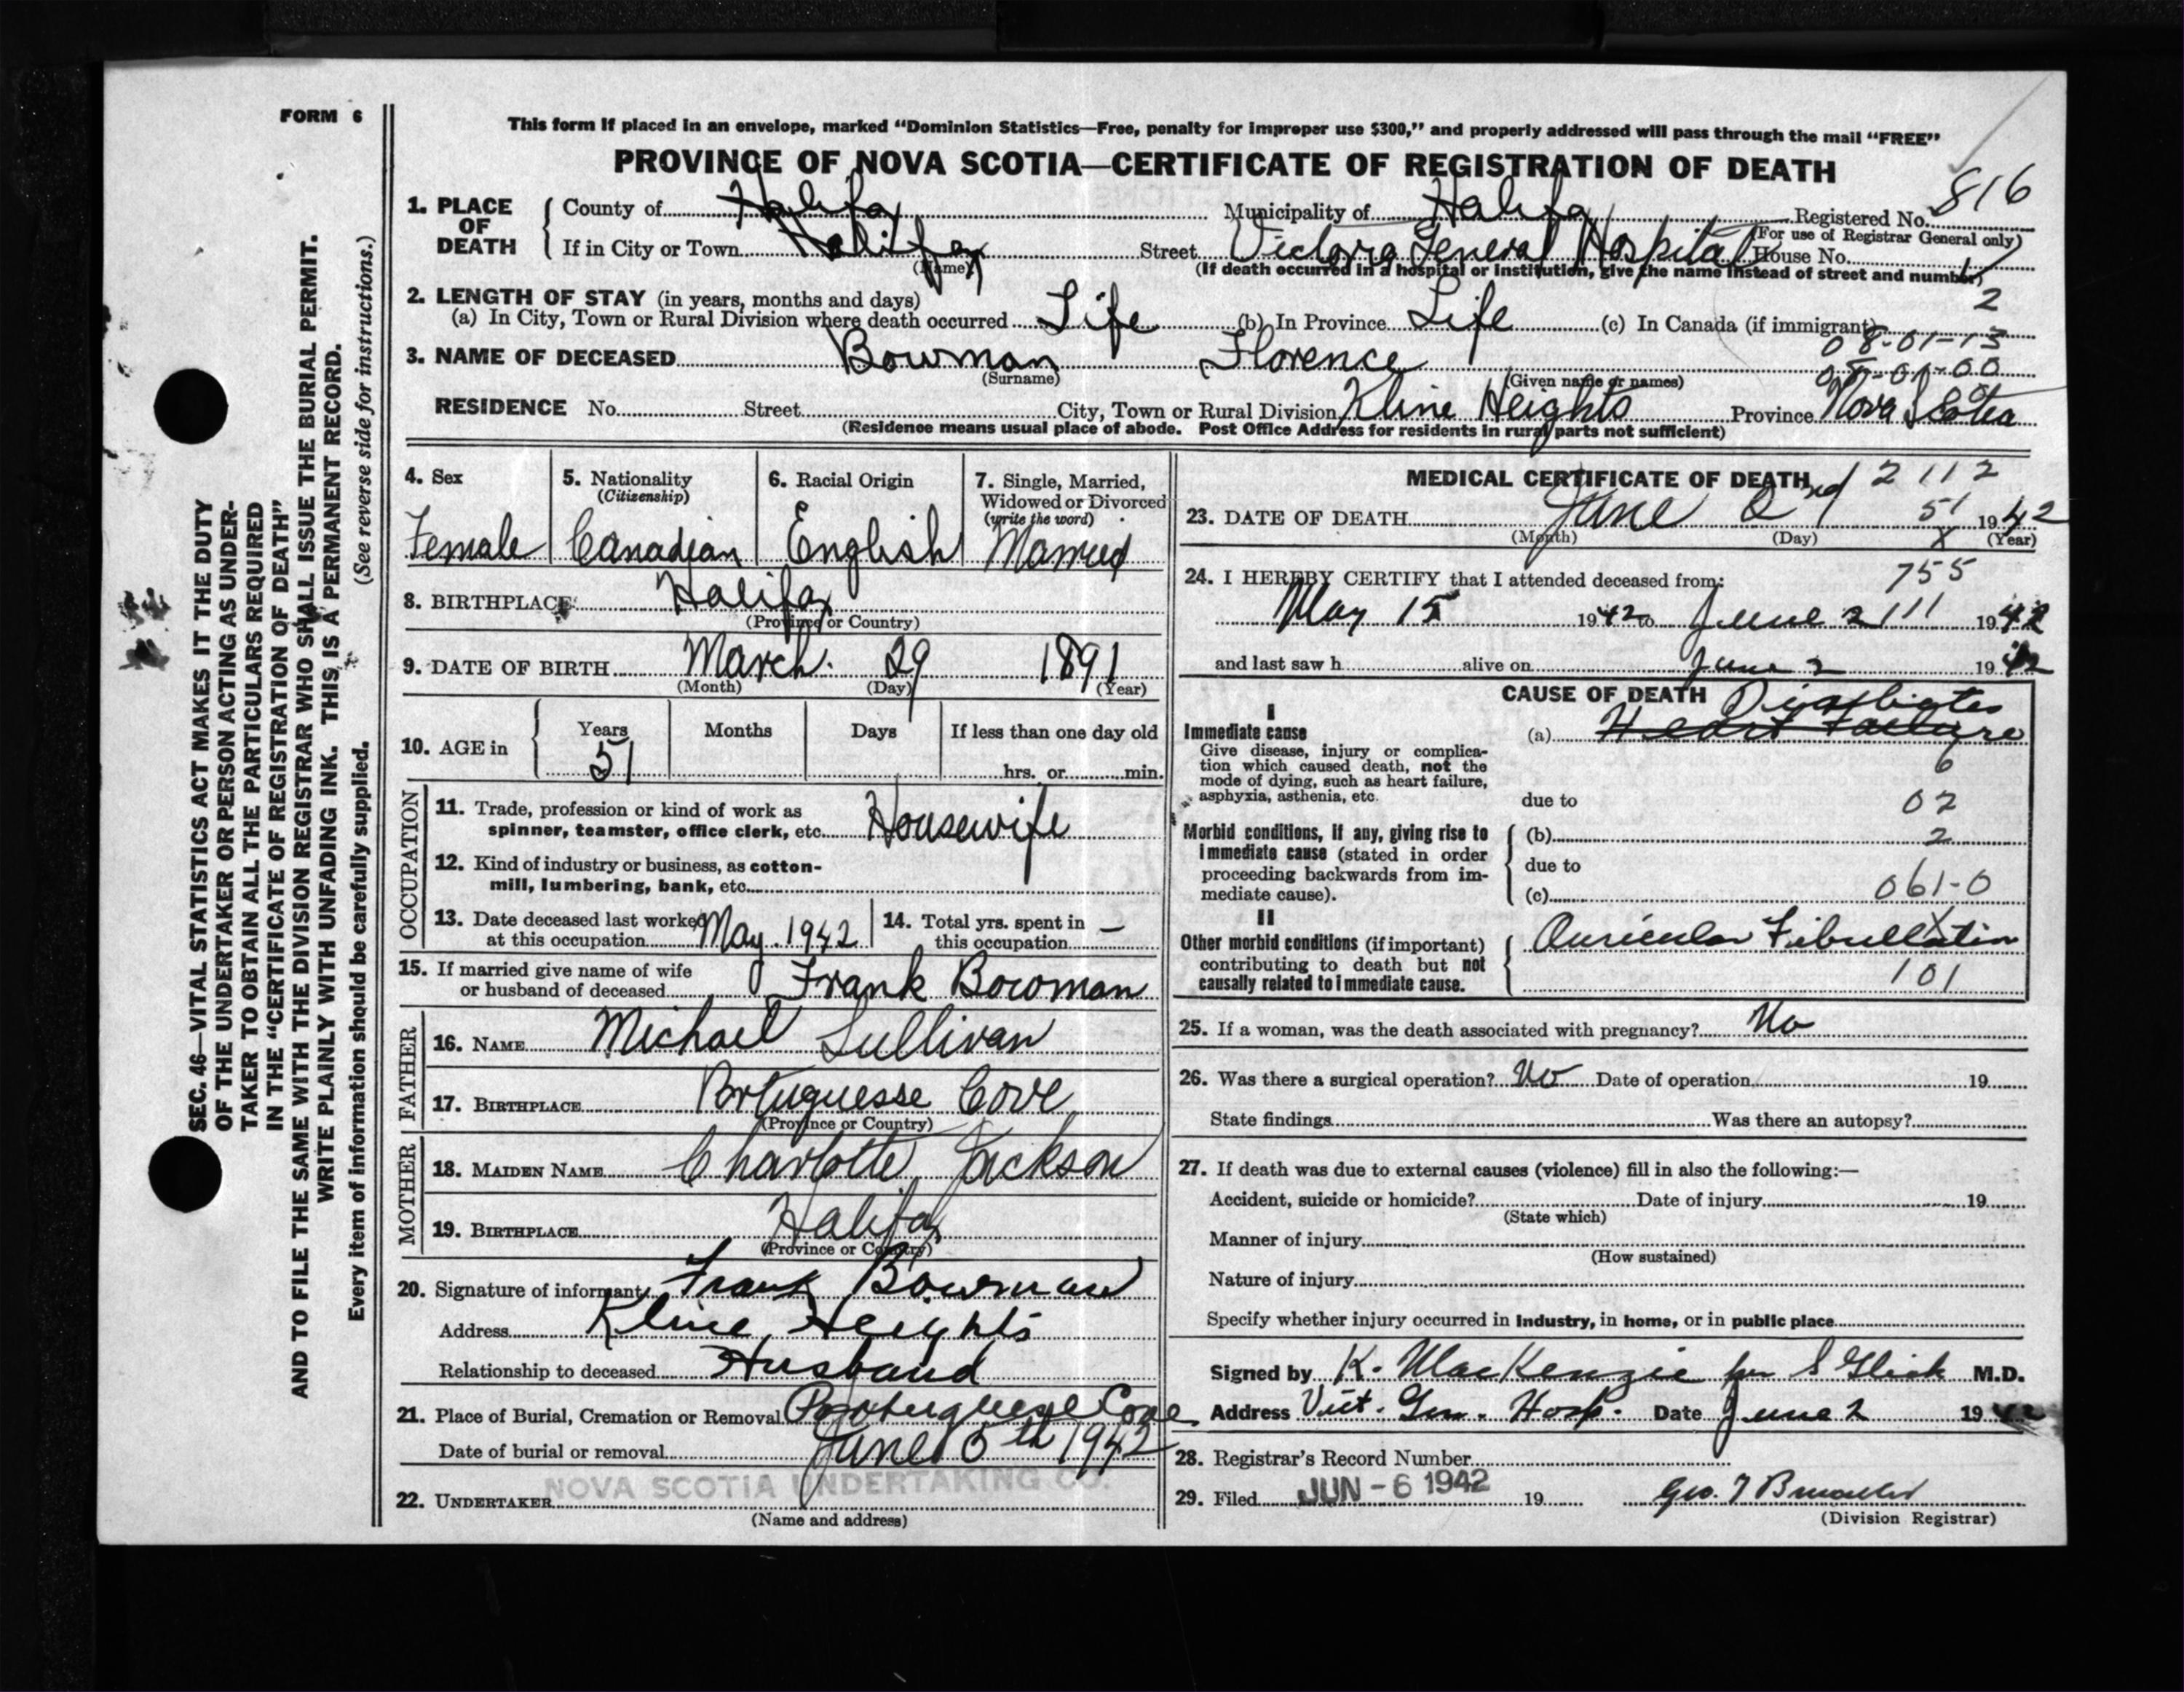 FORM 6
This form if placed in an envelope, marked "Dominion Statistics—Free, penalty for improper use $300," and properly addressed will pass through the mail "FREE"
PROVINCE OF NOVA SCOTIA—CERTIFICATE OF REGISTRATION OF DEATH
816
1. PLACE OF DEATH County of Halifax Municipality of Halifax Registered No.
(For use of Registrar General only)
If in City or Town Halifax Street Victoria General Hospital House No.
(Name) (If death occurred in a hospital or institution, give the name instead of street and number)
2. LENGTH OF STAY (in years, months and days) 2
(a) In City, Town or Rural Division where death occurred Life (b) In Province Life (c) In Canada (if immigrant)
08-01-13
3. NAME OF DECEASED Bowman Florence
(Surname) (Given name or names)
RESIDENCE No. Street City, Town or Rural Division Kline Heights Province Nova Scotia
(Residence means usual place of abode. Post Office Address for residents in rural parts not sufficient)
4. Sex 5. Nationality (Citizenship) 6. Racial Origin 7. Single, Married, Widowed or Divorced (write the word)
Female Canadian English Married
8. BIRTHPLACE Halifax
(Province or Country)
9. DATE OF BIRTH March 29 1891
(Month) (Day) (Year)
10. AGE in Years Months Days If less than one day old
51 hrs. or min.
OCCUPATION
11. Trade, profession or kind of work as
spinner, teamster, office clerk, etc. Housewife
12. Kind of industry or business, as cotton-
mill, lumbering, bank, etc.
13. Date deceased last worked at this occupation May. 1942 14. Total yrs. spent in this occupation —
15. If married give name of wife
or husband of deceased Frank Bowman
FATHER
16. NAME Michael Sullivan
17. BIRTHPLACE Portuguesse Cove
(Province or Country)
MOTHER
18. MAIDEN NAME Charlotte Jackson
19. BIRTHPLACE Halifax
(Province or Country)
20. Signature of informant Frank Bowman
Address Kline Heights
Relationship to deceased Husband
21. Place of Burial, Cremation or Removal Cove
Date of burial or removal June 5th 1942
NOVA SCOTIA UNDERTAKING CO.
22. UNDERTAKER
(Name and address)
MEDICAL CERTIFICATE OF DEATH 2112
23. DATE OF DEATH June 2nd 51 1942
(Month) (Day) X (Year)
24. I HEREBY CERTIFY that I attended deceased from: 755
May 15 1942 to June 2 111 1942
and last saw h alive on June 2 1942
CAUSE OF DEATH Diabetes
I
Immediate cause (a) Heart Failure
Give disease, injury or complica-
tion which caused death, not the
mode of dying, such as heart failure,
asphyxia, asthenia, etc.
6
due to 02
Morbid conditions, if any, giving rise to (b) 2
immediate cause (stated in order
proceeding backwards from im- due to
mediate cause). (c) 061-0
II
Other morbid conditions (if important) Auricular Fibrillation
contributing to death but not
causally related to immediate cause. 101
25. If a woman, was the death associated with pregnancy? No
26. Was there a surgical operation? No Date of operation 19
State findings Was there an autopsy?
27. If death was due to external causes (violence) fill in also the following:—
Accident, suicide or homicide? Date of injury 19
(State which)
Manner of injury
(How sustained)
Nature of injury
Specify whether injury occurred in industry, in home, or in public place
Signed by K. MacKenzie for S Glick M.D.
Address Vict. Gen. Hosp. Date June 2 1942
28. Registrar's Record Number
29. Filed JUN - 6 1942 19
(Division Registrar)
SEC. 46—VITAL STATISTICS ACT MAKES IT THE DUTY
OF THE UNDERTAKER OR PERSON ACTING AS UNDER-
TAKER TO OBTAIN ALL THE PARTICULARS REQUIRED
IN THE "CERTIFICATE OF REGISTRATION OF DEATH"
AND TO FILE THE SAME WITH THE DIVISION REGISTRAR WHO SHALL ISSUE THE BURIAL PERMIT.
WRITE PLAINLY WITH UNFADING INK. THIS IS A PERMANENT RECORD.
Every item of information should be carefully supplied. (See reverse side for instructions.)